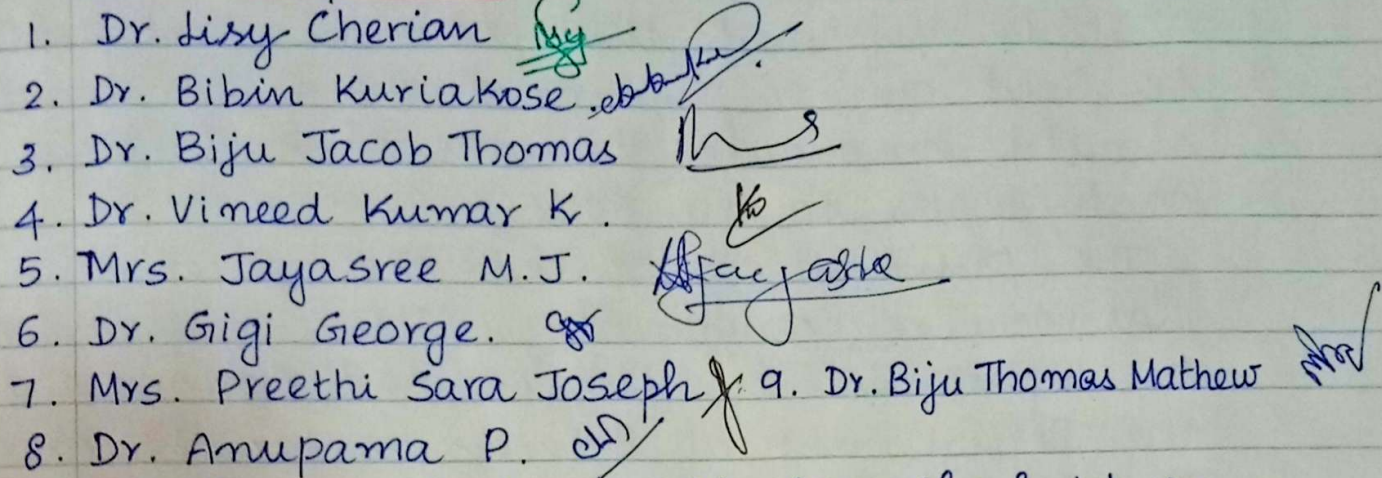 1. Dr. Lisy Cherian
2. Dr. Bibin Kuriakose
3. Dr. Biju Jacob Thomas
4. Dr. Vineed Kumar K.
5. Mrs. Jayasree M.J.
6. Dr. Gigi George.
7. Mrs. Preethi Sara Joseph 9. Dr. Biju Thomas Mathew
8. Dr. Anupama P.